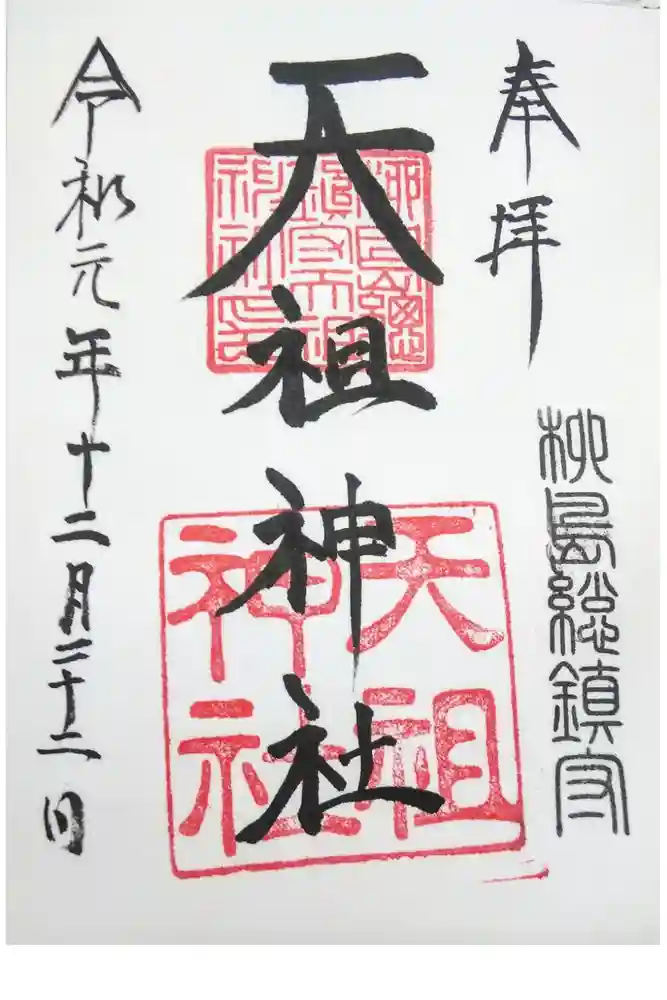 奉拝
柳島総鎮守
天祖神社
柳島總
鎮守天祖
神社印
天祖
神社
令和元年十二月二十二日